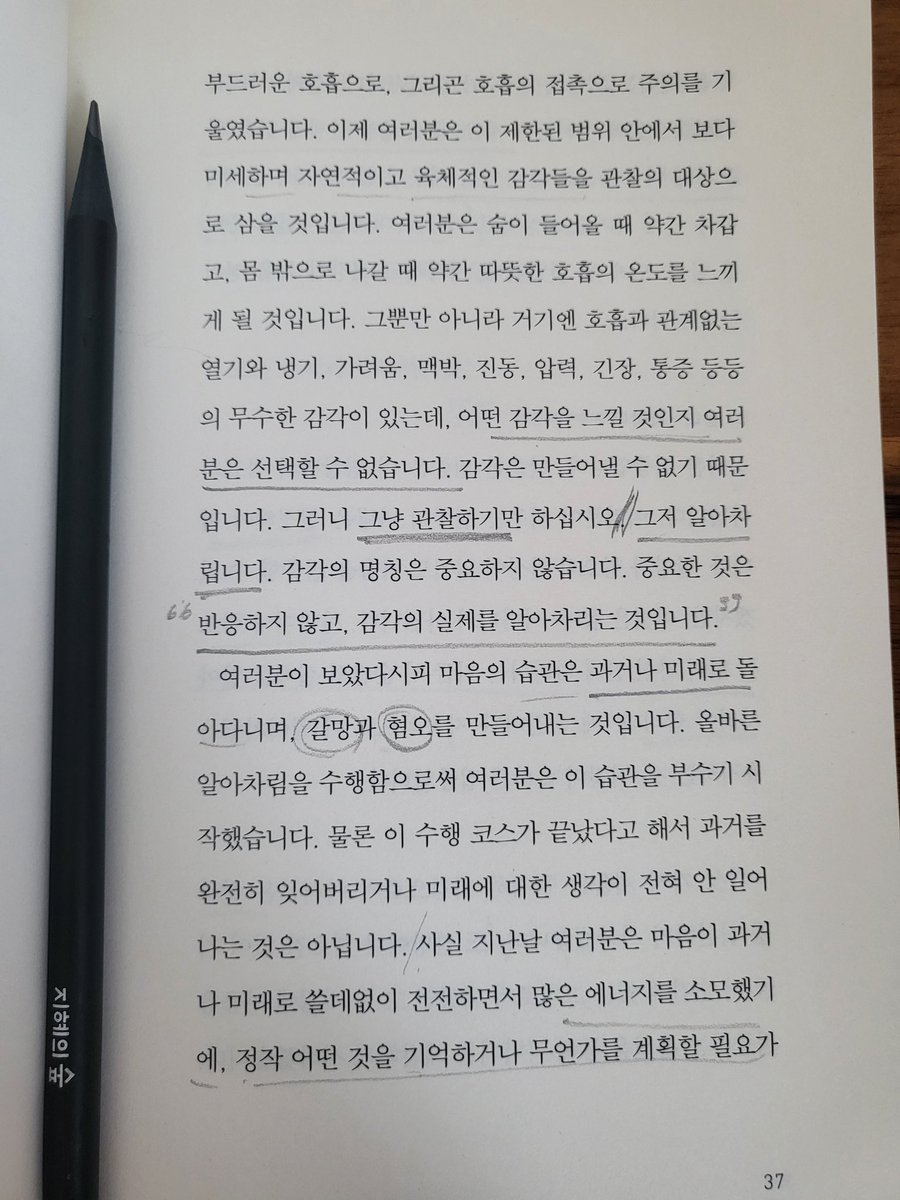 부드러운 호흡으로, 그리곤 호흡의 접촉으로 주의를 기
울였습니다. 이제 여러분은 이 제한된 범위 안에서 보다
미세하며 자연적이고 육체적인 감각들을 관찰의 대상으
로 삼을 것입니다. 여러분은 숨이 들어올 때 약간 차갑
고, 몸 밖으로 나갈 때 약간 따뜻한 호흡의 온도를 느끼
게 될 것입니다. 그뿐만 아니라 거기엔 호흡과 관계없는
열기와 냉기, 가려움, 맥박, 진동, 압력, 긴장, 통증 등등
의 무수한 감각이 있는데, 어떤 감각을 느낄 것인지 여러
분은 선택할 수 없습니다. 감각은 만들어낼 수 없기 때문
입니다. 그러니 그냥 관찰하기만 하십시오. 그저 알아차
립니다. 감각의 명칭은 중요하지 않습니다. 중요한 것은
반응하지 않고, 감각의 실제를 알아차리는 것입니다.
여러분이 보았다시피 마음의 습관은 과거나 미래로 돌
아다니며, 갈망과 혐오를 만들어내는 것입니다. 올바른
알아차림을 수행함으로써 여러분은 이 습관을 부수기 시
작했습니다. 물론 이 수행 코스가 끝났다고 해서 과거를
완전히 잊어버리거나 미래에 대한 생각이 전혀 안 일어
나는 것은 아닙니다. 사실 지난날 여러분은 마음이 과거
나 미래로 쓸데없이 전전하면서 많은 에너지를 소모했기
에, 정작 어떤 것을 기억하거나 무언가를 계획할 필요가
37
지혜의 숲